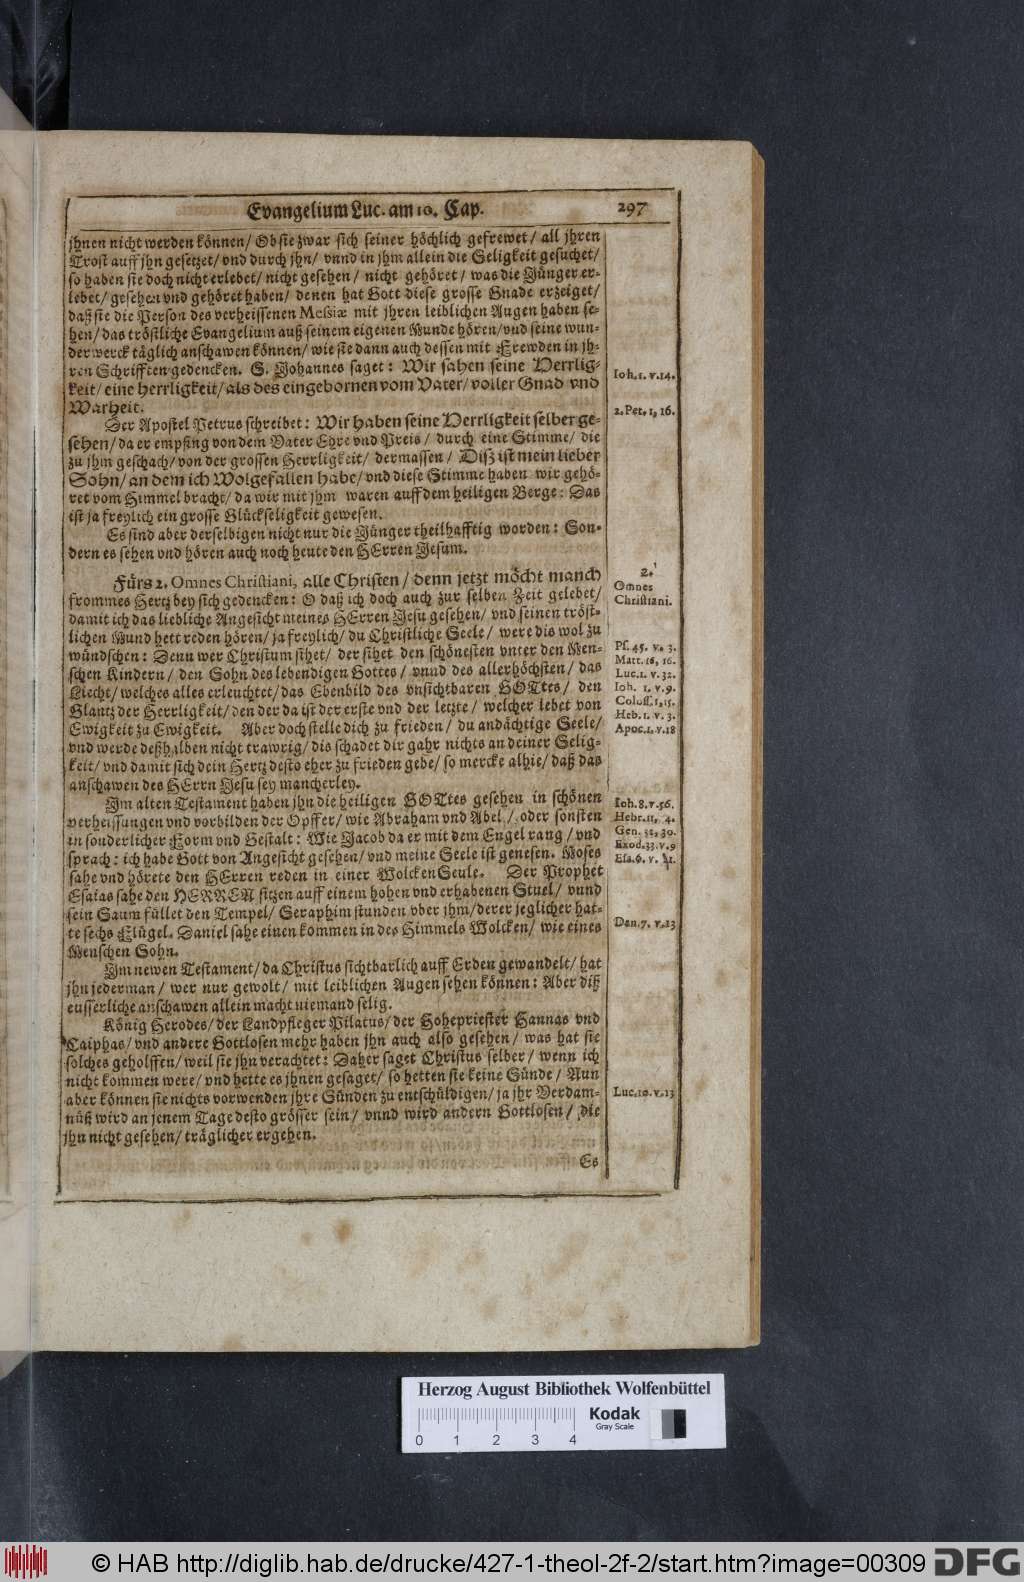 Evangelium Luc. am 10. Cap. 297
jhnen nicht werden können/ Ob sie zwar sich seiner höchlich gefrewet/ all jhren
Trost auff jhn gesetzet/ vnd durch jhn/ vnnd in jhm allein die Seligkeit gesuchet/
so haben sie doch nicht erlebet/ nicht gesehen/ nicht gehöret/ was die Jünger er-
lebet/ gesehen vnd gehöret haben/ denen hat Gott diese grosse Gnade erzeiget/
daß sie die Person des verheissenen Messiæ mit jhren leiblichen Augen haben se-
hen/ das tröstliche Evangelium auß seinem eigenen Munde hören/ vnd seine wun-
derwerck täglich anschawen können/ wie sie dann auch dessen mit Frewden in jh-
ren Schrifften gedencken. S. Johannes saget: Wir sahen seine Herrlig-
keit/ eine herrligkeit/ als des eingebornen vom Vater/ voller Gnad vnd
Warheit.
Ioh. 1. v. 14.
Der Apostel Petrus schreibet: Wir haben seine Herrligkeit selber ge-
sehen/ da er empfing von dem Vater Ehre vnd Preis/ durch eine Stimme/ die
zu jhm geschach/ von der grossen Herrligkeit/ dermassen/ Diß ist mein lieber
Sohn/ an dem ich Wolgefallen habe/ vnd diese Stimme haben wir gehö-
ret vom Himmel bracht/ da wir mit jhm waren auff dem heiligen Berge: Das
ist ja freylich ein grosse Glückseligkeit gewesen.
2. Pet. 1, 16.
Es sind aber derselbigen nicht nur die Jünger theilhafftig worden: Son-
dern es sehen vnd hören auch noch heute den HErren Jesum.
Fürs 2. Omnes Christiani, alle Christen/ denn jetzt möcht manch
frommes Hertz bey sich gedencken: O daß ich doch auch zur selben Zeit gelebet/
damit ich das liebliche Angesicht meines HErren Jesu gesehen/ vnd seinen tröst-
lichen Mund hett reden hören/ ja freylich/ du Christliche Seele/ were dis wol zu
wündschen: Denn wer Christum sihet/ der sihet den schönesten vnter den Men-
schen Kindern/ den Sohn des lebendigen Gottes/ vnnd des allerhöchsten/ das
Liecht/ welches alles erleuchtet/ das Ebenbild des vnsichtbaren GOTtes/ den
Glantz der Herrligkeit/ den der da ist der erste vnd der letzte/ welcher lebet von
Ewigkeit zu Ewigkeit. Aber doch stelle dich zu frieden/ du andächtige Seele/
vnd werde deßhalben nicht trawrig/ dis schadet dir gahr nichts an deiner Selig-
keit/ vnd damit sich dein Hertz desto eher zu frieden gebe/ so mercke alhie/ daß das
anschawen des HErrn Jesu sey mancherley.
2.
Omnes
Christiani.
Ps. 45. v. 3.
Matt. 16, 16.
Luc. 1. v. 32.
Ioh. 1. v. 9.
Coloss. 1, 15.
Heb. 1. v. 3.
Apoc. 1. v. 18
Im alten Testament haben jhn die heiligen GOTtes gesehen in schönen
verheissungen vnd vorbilden der Opffer/ wie Abraham vnd Abel/ oder sonsten
in sonderlicher Form vnd Gestalt: Wie Jacob da er mit dem Engel rang/ vnd
sprach: ich habe Gott von Angesicht gesehen/ vnd meine Seele ist genesen. Moses
sahe vnd hörete den HErren reden in einer Wolcken Seule. Der Prophet
Esaias sahe den HERREN sitzen auff einem hohen vnd erhabenen Stuel/ vnnd
sein Saum füllet den Tempel/ Seraphim stunden vber jhm/ derer jeglicher hat-
te sechs Flügel. Daniel sahe einen kommen in des Himmels Wolcken/ wie eines
Menschen Sohn.
Ioh. 8. v. 56.
Hebr. 11, 4.
Gen. 32, 30.
Exod. 33. v. 9
Esa. 6. v. 1.
Dan. 7. v. 13
Im newen Testament/ da Christus sichtbarlich auff Erden gewandelt/ hat
jhn jederman/ wer nur gewolt/ mit leiblichen Augen sehen können: Aber diß
eusserliche anschawen allein macht niemand selig.
König Herodes/ der Landpfleger Pilatus/ der Hohepriester Hannas vnd
Caiphas/ vnd andere Gottlosen mehr haben jhn auch also gesehen/ was hat sie
solches geholffen/ weil sie jhn verachtet: Daher saget Christus selber/ wenn ich
nicht kommen were/ vnd hette es jhnen gesaget/ so hetten sie keine Sünde/ Nun
aber können sie nichts vorwenden jhre Sünden zu entschüldigen/ ja jhr Verdam-
nüß wird an jenem Tage desto grösser sein/ vnnd wird andern Gottlosen/ die
jhn nicht gesehen/ träglicher ergehen.
Luc. 10. v. 13
Es
Herzog August Bibliothek Wolfenbüttel
0 1 2 3 4
Kodak
Gray Scale
© HAB http://diglib.hab.de/drucke/427-1-theol-2f-2/start.htm?image=00309
DFG